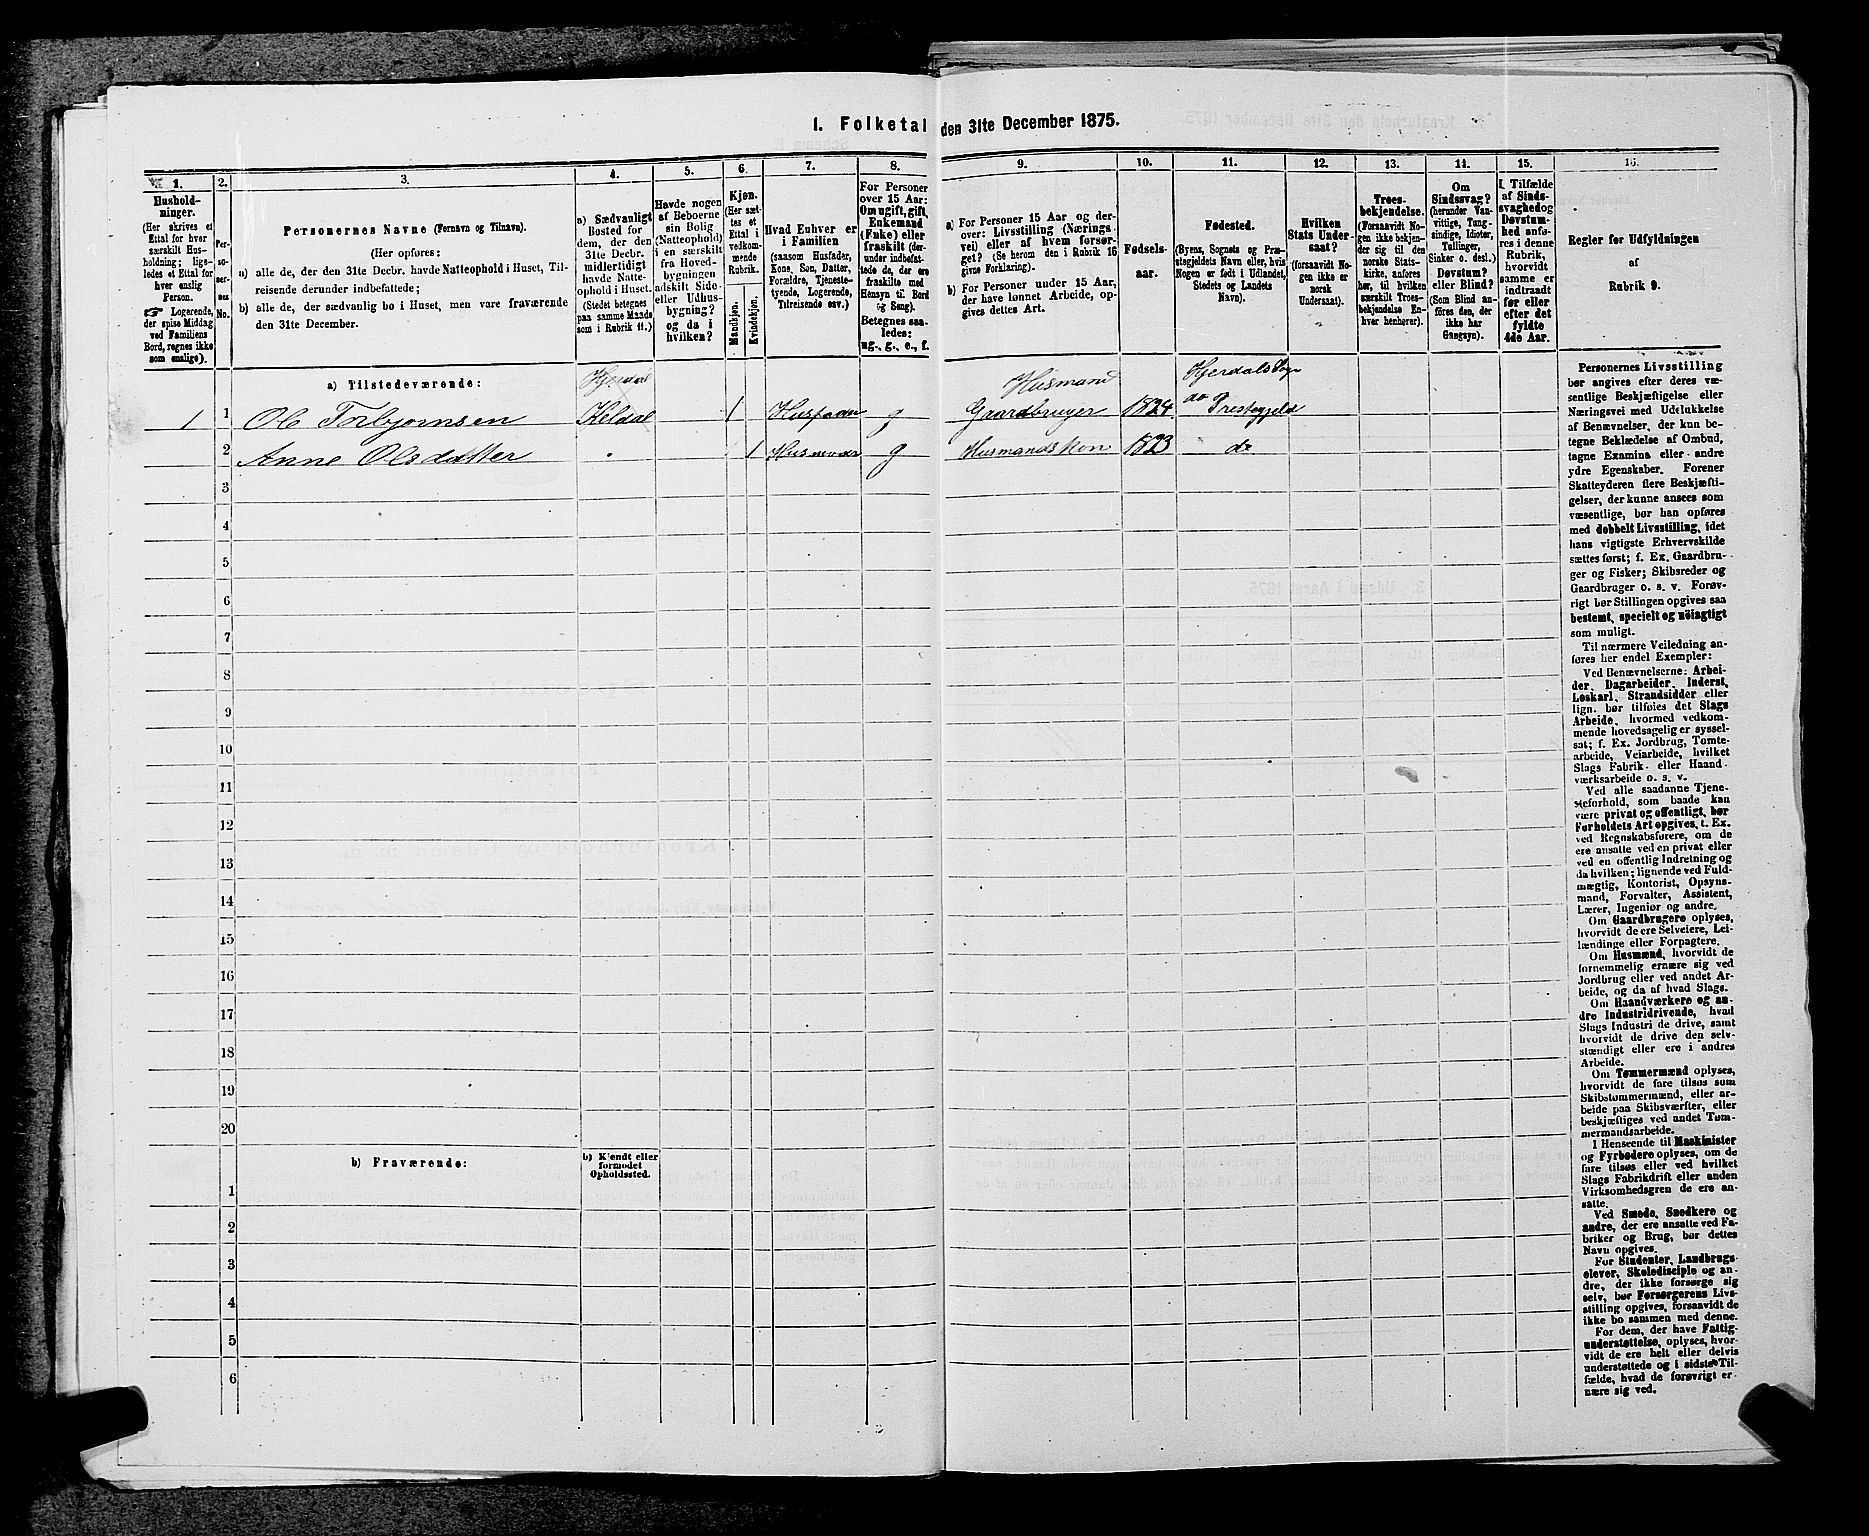 1. Folketal den 31te December 1875.
1.
Husholdninger.
(Her skrives et
Ettal for hver
særskilt Husholdning; ligeledes
et Ettal for
hver enslig
Person.
☞ Logerende,
der spise Middag
ved Familiens
Bord, regnes ikke
som enslige).
2.
Personernes
No.
3.
Personernes Navne (Fornavn og Tilnavn).
(Her opføres:
a) alle de, der den 31te Decbr. havde Natteophold i Huset, Tilreisende
derunder indbefattede;
b) alle de, der sædvanlig bo i Huset, men vare fraværende
den 31te December.
4.
a) Sædvanligt
Bosted for
dem, der den
31te Decbr.
midlertidigt
havde Natteophold
i Huset.
(Stedet betegnes
paa samme Maade
som i Rubrik 11.)
5.
Havde nogen
af Beboerne
sin Bolig
(Natteophold)
i en særskilt
fra Hovedbygningen
adskilt Side-
eller Udhusbygning?
og da i
hvilken?
6.
Kjøn.
(Her sættes
et
Ettal i
vedkommende
Rubrik.
Mandkjøn.
Kvindekjøn.
7.
Hvad Enhver er
i Familien
(saasom Husfader,
Kone, Søn, Datter,
Forældre, Tjenestetyende,
Logerende,
Tilreisende osv.)
8.
For Personer
over 15 Aar:
Om ugift, gift,
Enkemand
(Enke) eller
fraskilt (derunder
indbefattede
de, der ere
fraskilte med
Hensyn til Bord
og Seng).
Betegnes saaledes:
ug., g., e., f.
9.
a) For Personer 15 Aar og derover:
Livsstilling (Næringsvei)
eller af hvem forsørget
(Se herom den i Rubrik 16
givne Forklaring).
b) For Personer under 15 Aar,
der have lønnet Arbeide, opgives
dettes Art.
10.
Fødselsaar.
11.
Fødested.
(Byens, Sognets og Præstegjeldets
Navn eller, hvis
Nogen er født i Udlandet,
Stedets og Landets
Navn).
12.
Hvilken
Stats Undersaat?
(forsaavidt Nogen
ikke er
norsk
Undersaat).
13.
Troesbekjendelse.
(Forsaavidt Nogen
ikke bekjender
sig til den
norske Statskirke,
anføres
her, til hvilken
særskilt Troesbekjendelse
Enhver
henhører).
14.
Om
Sindssvag?
(herunder Vanvittige,
Tungsindige,
Idioter,
Tullinger,
Sinker o. desl.)
Døvstum?
eller Blind?
(Som Blind anføres
den, der
ikke har
Gangsyn).
15.
I Tilfælde
af Sindssvaghed
og
Døvstumhed
anføres
i denne
Rubrik,
hvorvidt
samme er
indtraadt
før eller
efter det
fyldte
4de Aar.
16.
Regler for Udfyldningen
af
Rubrik 9.
a) Tilstedeværende:
Husmand
Hjerdals Sogn
1 1 Ole Torbjørnsen 1 Husfader g Gaardbruger 1824 do Prestegjeld
2 Anne Olsdatter 1 Husmoder g Husmandskon 1823 do
3
4
5
6
7
8
9
10
11
12
13
14
15
16
17
18
19
20
b) Fraværende:
b) Kjendt eller
formodet
Opholdssted.
1
2
3
4
5
6
Personernes Livsstilling
bør angives efter deres væsentlige
Beskjæftigelse eller
Næringsvei med Udelukkelse
af Benævnelser, der kun betegne
Beklædelse af Ombud,
tagne Examina eller andre
ydre Egenskaber. Forener
Skatteyderen flere Beskjæftigelser,
der kunne ansees som
væsentlige, bør han opføres
med dobbelt Livsstilling, idet
hans vigtigste Erhvervskilde
sættes først; f. Ex. Gaardbruger
og Fisker; Skibsreder og
Gaardbruger o. s. v. Forøvrigt
bør Stillingen opgives saa
bestemt, specielt og nøiagtigt
som muligt.
Til nærmere Veiledning anføres
her endel Exempler:
Ved Benævnelserne: Arbeider,
Dagarbeider, Inderst,
Løskarl, Strandsidder eller
lign. bør tilføies det Slags
Arbeide, hvormed vedkommende
hovedsagelig er sysselsat;
f. Ex. Jordbrug, Tomtearbeide,
Veiarbeide, hvilket
Slags Fabrik- eller Haandværksarbeide
o. s. v.
Ved alle saadanne Tjenesteforhold,
som baade kan
være privat og offentligt, bør
Forholdets Art opgives, t. Ex.
ved Regnskabsførere, om de
ere ansatte ved en privat eller
ved en offentlig Indretning og
da hvilken; lignende ved Fuldmægtig,
Kontorist, Opsynsmand,
Forvalter, Assistent,
Lærer, Ingeniør og andre.
Om Gaardbrugere oplyses,
hvorvidt de ere Selveiere, Leilændinge
eller Forpagtere.
Om Husmænd, hvorvidt de
fornemmelig ernære sig ved
Jordbrug eller ved andet Arbeide,
og da af hvad Slags.
Om Haandværkere og andre
Industridrivende, hvad
Slags Industri de drive, samt
hvorvidt de drive den selvstændigt
eller ere i andres
Arbeide.
Om Tømmermænd oplyses,
hvorvidt de fare tilsøs som
Skibstømmermænd, eller arbeide
paa Skibsværfter, eller
beskjæftiges ved andet Tømmermandsarbeide.
I Henseende til Maskinister
og Fyrbødere oplyses, om de
fare tilsøs eller ved hvilket
Slags Fabrikdrift eller anden
Virksomhedsgren de ere ansatte.
Ved Smede, Snedkere og
andre, der ere ansatte ved Fabriker
og Brug, bør dettes
Navn opgives.
For Studenter, Landbrugselever,
Skoledisciple og andre,
der ikke forsørge sig
selv, bør Forsørgerens Livsstilling
opgives, forsaavidt de
ikke bo sammen med denne.
For dem, der have Fattigunderstøttelse,
oplyses, hvorvidt
de ere helt eller delvis
understøttede og i sidste Tilfælde,
hvad de forøvrigt ernære
sig ved.